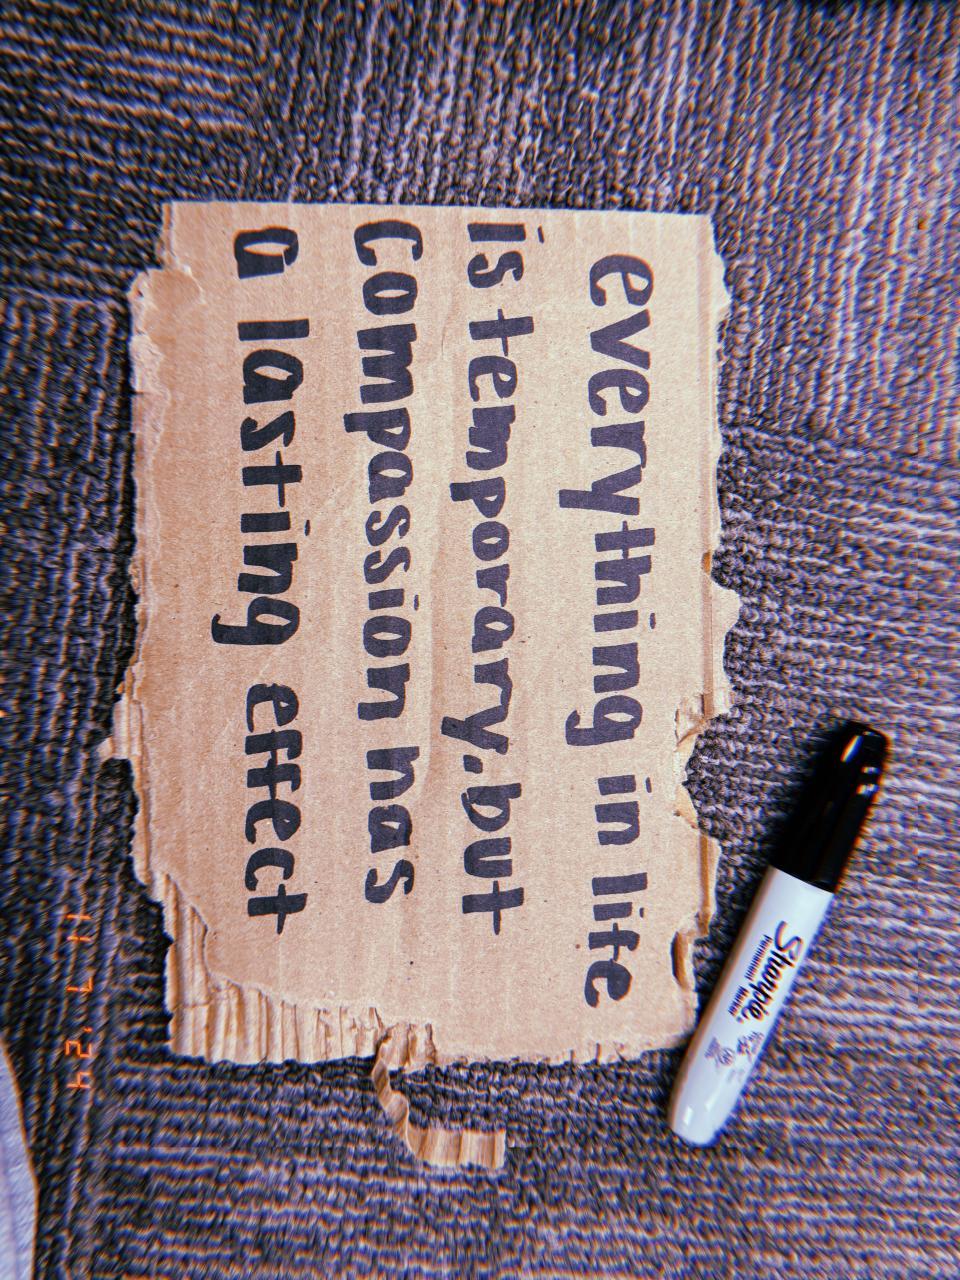 everything in life
is temporary. but
Compassion has
a lasting effect
Sharpie.
Permanent Marker
11 7 '24